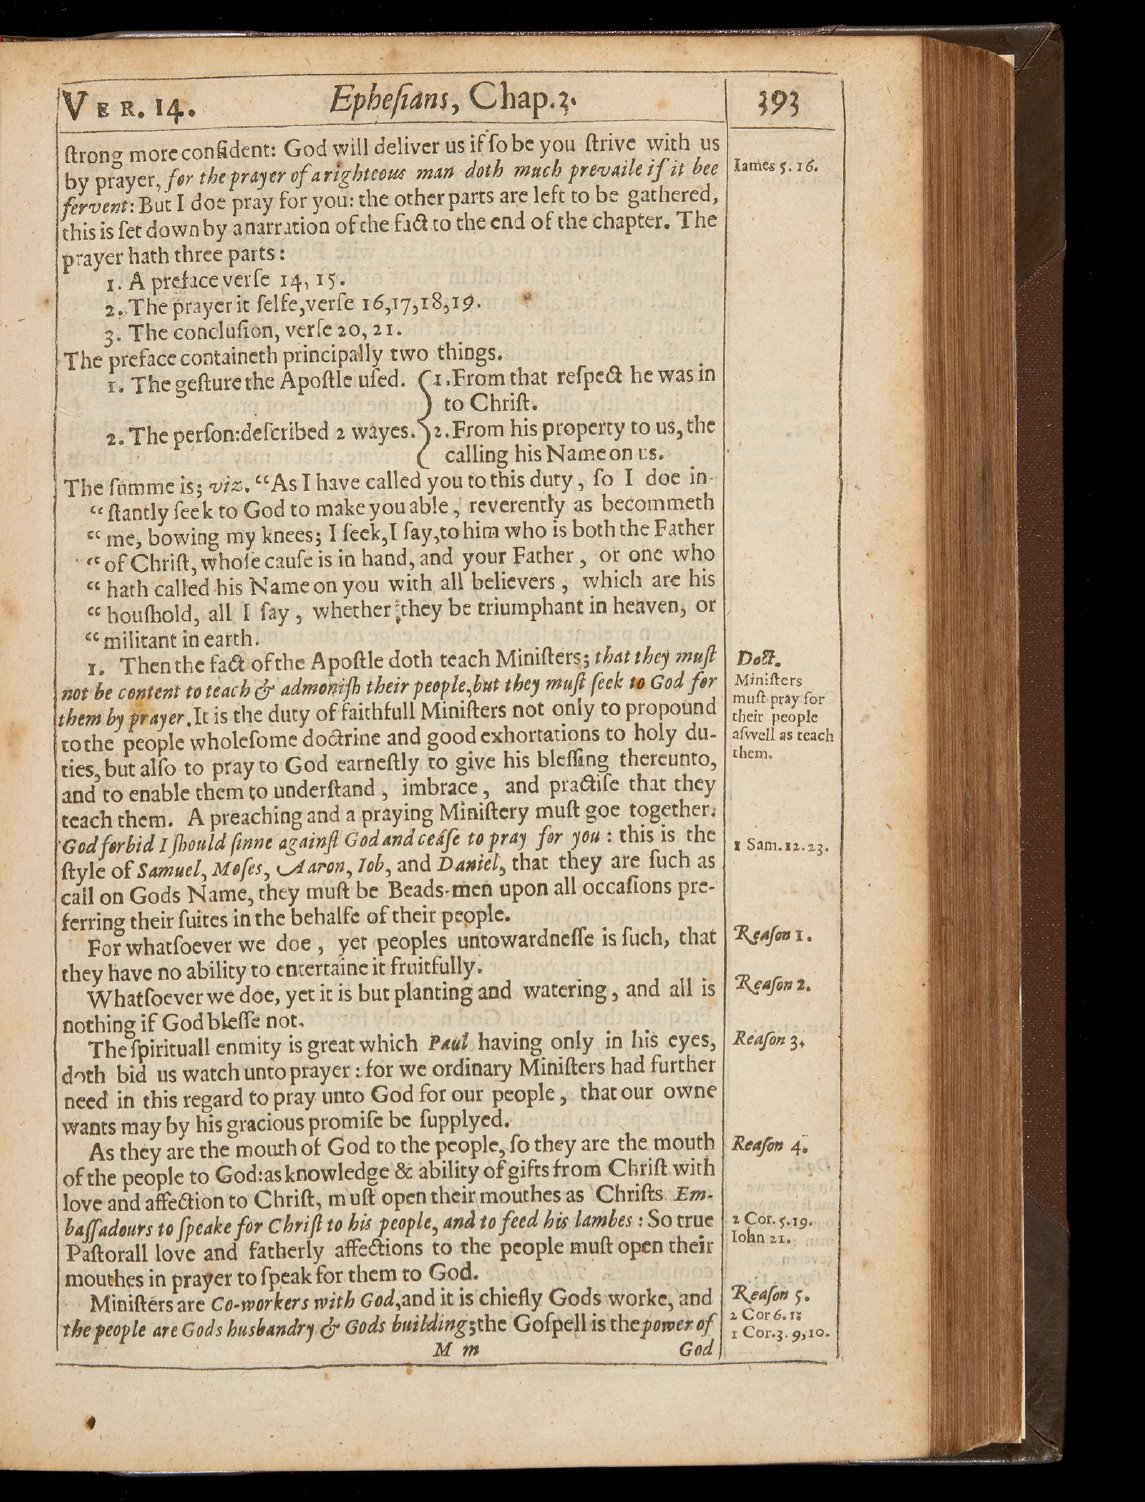 VER. 14.
Epheſians, Chap. 3.
393
ſtrong more confident: God will deliver us if ſo be you ſtrive with us
by prayer, for the prayer of a righteous man doth much prevaile if it bee
fervent: But I doe pray for you: the other parts are left to be gathered,
this is ſet down by a narration of the fact to the end of the chapter. The
prayer hath three parts:
1. A preface verſe 14, 15.
2. The prayer it ſelfe, verſe 16,17,18,19.
3. The concluſion, verſe 20, 21.
The preface containeth principally two things.
1. The geſture the Apoſtle uſed. { 1. From that reſpect he was in
to Chriſt.
2. The perſon: deſcribed 2 wayes. 2. From his property to us, the
calling his Name on us.
The ſumme is; viz. “As I have called you to this duty, ſo I doe in-
“ ſtantly ſeek to God to make you able, reverently as becommeth
“ me, bowing my knees; I ſeek, I ſay, to him who is both the Father
“ of Chriſt, whoſe cauſe is in hand, and your Father, or one who
“ hath called his Name on you with all believers, which are his
“ houſhold, all I ſay, whether they be triumphant in heaven, or
“ militant in earth.
1. Then the fact of the Apoſtle doth teach Miniſters; that they muſt
not be content to teach & admoniſh their people, but they muſt ſeek to God for
them by prayer. It is the duty of faithfull Miniſters not only to propound
to the people wholeſome doctrine and good exhortations to holy du-
ties, but alſo to pray to God earneſtly to give his bleſſing thereunto,
and to enable them to underſtand, imbrace, and practiſe that they
teach them. A preaching and a praying Miniſtery muſt goe together.
God forbid I ſhould ſinne againſt God and ceaſe to pray for you: this is the
ſtyle of Samuel, Moſes, Aaron, Iob, and Daniel, that they are ſuch as
call on Gods Name, they muſt be Beads-men upon all occaſions pre-
ferring their ſuites in the behalfe of their people.
For whatſoever we doe, yet peoples untowardneſſe is ſuch, that
they have no ability to entertaine it fruitfully.
Whatſoever we doe, yet it is but planting and watering, and all is
nothing if God bleſſe not.
The ſpirituall enmity is great which Paul having only in his eyes,
doth bid us watch unto prayer: for we ordinary Miniſters had further
need in this regard to pray unto God for our people, that our owne
wants may by his gracious promiſe be ſupplyed.
As they are the mouth of God to the people, ſo they are the mouth
of the people to God: as knowledge & ability of gifts from Chriſt with
love and affection to Chriſt, muſt open their mouthes as Chriſts Em-
baſſadours to ſpeake for Chriſt to his people, and to feed his lambes: So true
Paſtorall love and fatherly affections to the people muſt open their
mouthes in prayer to ſpeak for them to God.
Miniſters are Co-workers with God, and it is chiefly Gods worke, and
the people are Gods husbandry & Gods building; the Goſpell is the power of
M m
God
Iames 5. 16.
Doct.
Miniſters
muſt pray for
their people
aſwell as teach
them.
1 Sam. 12. 23.
Reaſon 1.
Reaſon 2.
Reaſon 3.
Reaſon 4.
2 Cor. 5. 19.
Iohn 21.
Reaſon 5.
2 Cor 6. 1:
1 Cor. 3. 9, 10.